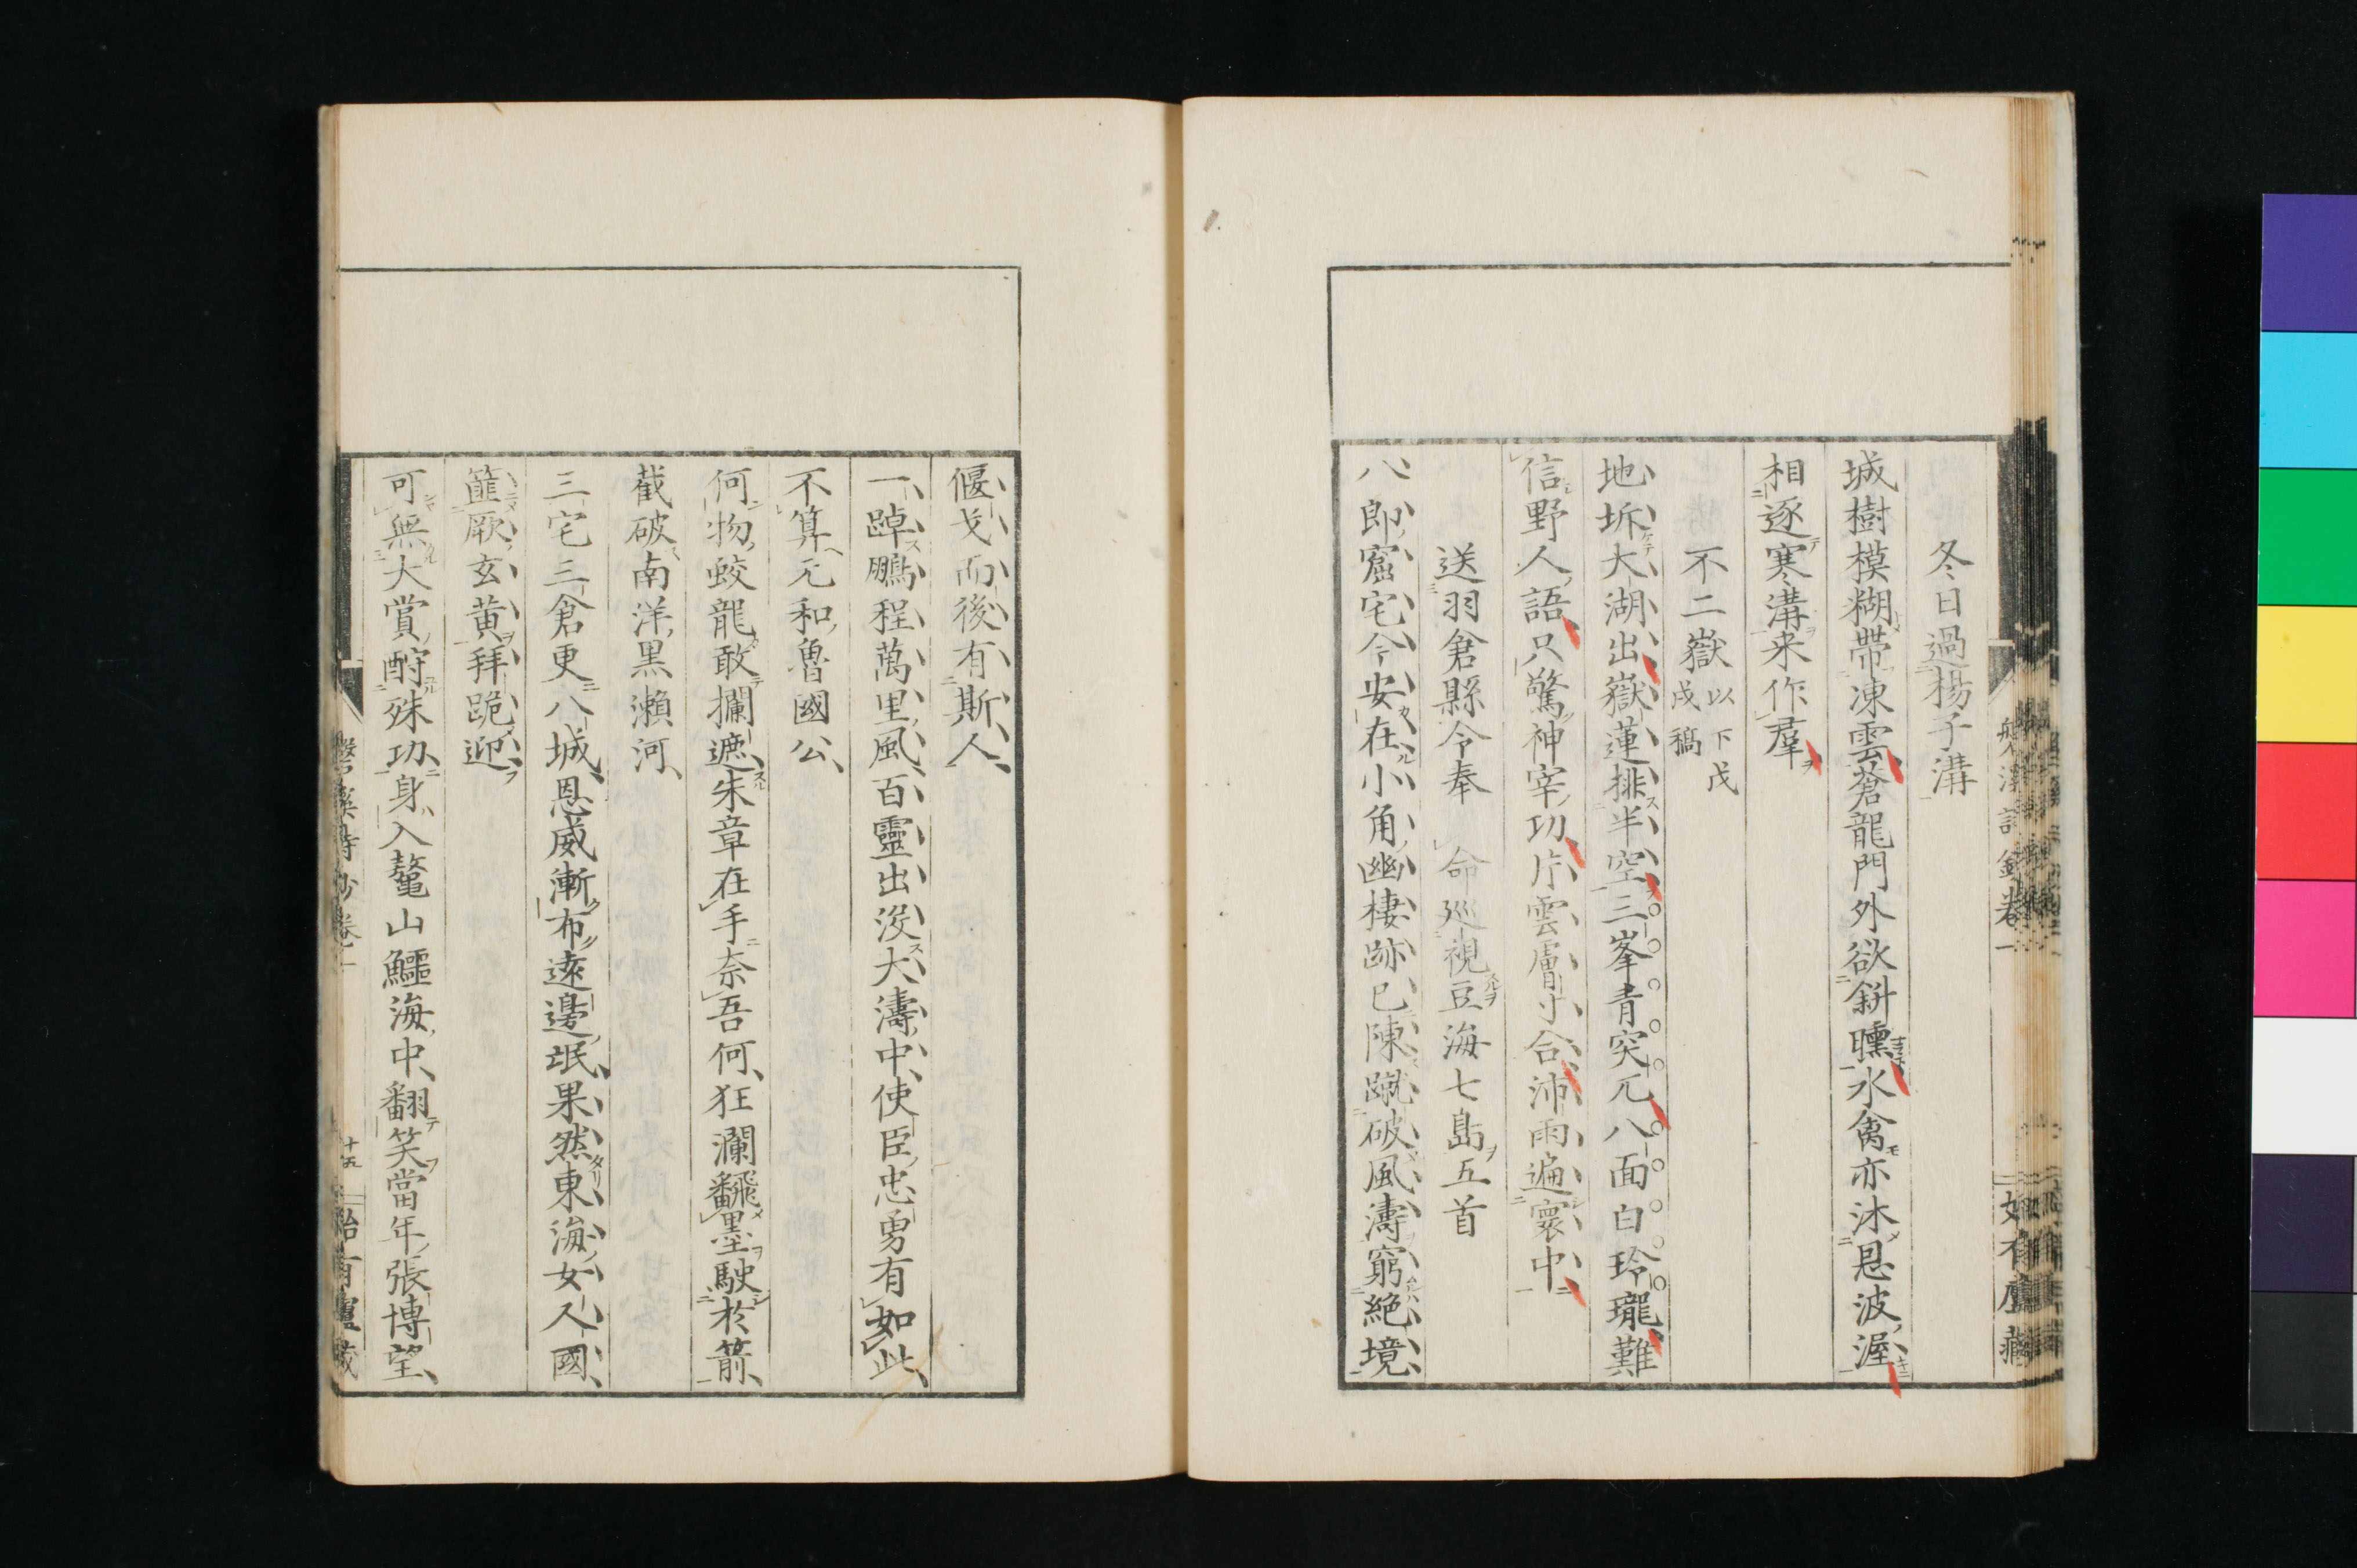 冬日過楊子溝
城樹模糊帶凍雲蒼龍門外欲餅曛水禽亦沐恩波渥
相逐寒溝来作羣
不二嶽以下戊戌稿
地坼大湖出嶽蓮排半空三峯青突兀八面白玲瓏難
信野人語只驚神宰功片雲膚寸合沛雨遍寰中
送羽倉縣令奉 命巡視豆海七島五首
八郎窟宅今安在小角幽棲跡已陳蹴破風濤窮絕境
偃戈而後有斯人
一踔鵬程萬里風百靈出沒大濤中使臣忠勇有如此
不算元和魯國公
何物蛟龍敢攔遮朱章在手奈吾何狂瀾飜墨駛於箭
截破南洋黒瀨河
三宅三倉更八城恩威漸布遠邊氓果然東海女人國
篚厥玄黄拜跪迎
可無大賞酧殊功身入鼇山鱷海中翻笑當年張博望
磐溪詩鈔卷一
十五